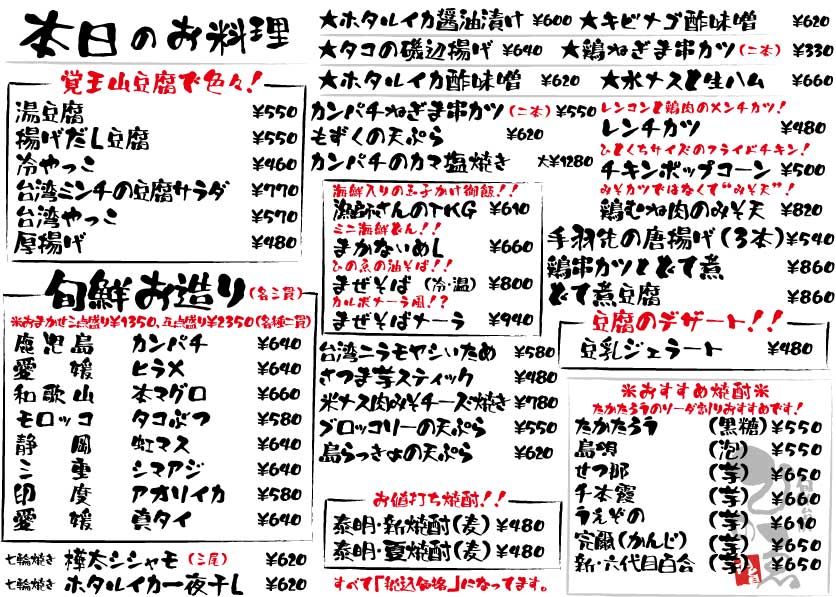 本日のお料理
★ホタルイカ醤油漬け ¥600 ★キビナゴ酢味噌 ¥620
★タコの磯辺揚げ ¥640 ★鶏ねぎま串カツ(二本) ¥330
★ホタルイカ酢味噌 ¥620 ★水ナスと生ハム ¥660
覚王山豆腐で色々!
湯豆腐 ¥550
揚げだし豆腐 ¥550
冷やっこ ¥460
台湾ミンチの豆腐サラダ ¥770
台湾やっこ ¥570
厚揚げ ¥480
旬鮮お造り(各三貫)
※おまかせ三点盛り¥1350、五点盛り¥2350(各種二貫)
鹿児島 カンパチ ¥640
愛媛 ヒラメ ¥640
和歌山 本マグロ ¥660
モロッコ タコぶつ ¥580
静岡 虹マス ¥640
三重 シマアジ ¥640
印度 アオリイカ ¥580
愛媛 真タイ ¥640
七輪焼き 樺太シシャモ(三尾) ¥620
七輪焼き ホタルイカ一夜干し ¥620
カンパチねぎま串カツ(二本) ¥550
もずくの天ぷら ¥620
カンパチのカマ塩焼き 大¥1280
海鮮入りの玉子かけ御飯!!
漁師さんのTKG ¥610
ミニ海鮮どん!!
まかないめし ¥660
ひの玉の油そば!!
まぜそば(冷・温) ¥800
カルボナーラ風!?
まぜそばナーラ ¥940
台湾ニラモヤシいため ¥580
さつま芋スティック ¥480
米ナス肉みそチーズ焼き ¥780
ブロッコリーの天ぷら ¥550
島らっきょの天ぷら ¥620
お値打ち焼酎!!
泰明・新焼酎(麦) ¥480
泰明・夏焼酎(麦) ¥480
すべて「税込価格」になってます。
レンコンと鶏肉のメンチカツ!
レンチカツ ¥480
ひとくちサイズのフライドチキン!
チキンポップコーン ¥500
みそカツではなくて“みそ天”!
鶏むね肉のみそ天 ¥820
手羽先の唐揚げ(3本) ¥540
鶏串カツとどて煮 ¥860
どて煮豆腐 ¥860
豆腐のデザート!!
豆乳ジェラート ¥480
※おすすめ焼酎※
たかたろうのソーダ割りおすすめです!
たかたろう (黒糖) ¥550
島唄 (泡) ¥550
せつ那 (芋) ¥650
千本霞 (芋) ¥660
うえぞの (芋) ¥610
完爾(かんじ) (芋) ¥650
新・六代目百合 (芋) ¥650